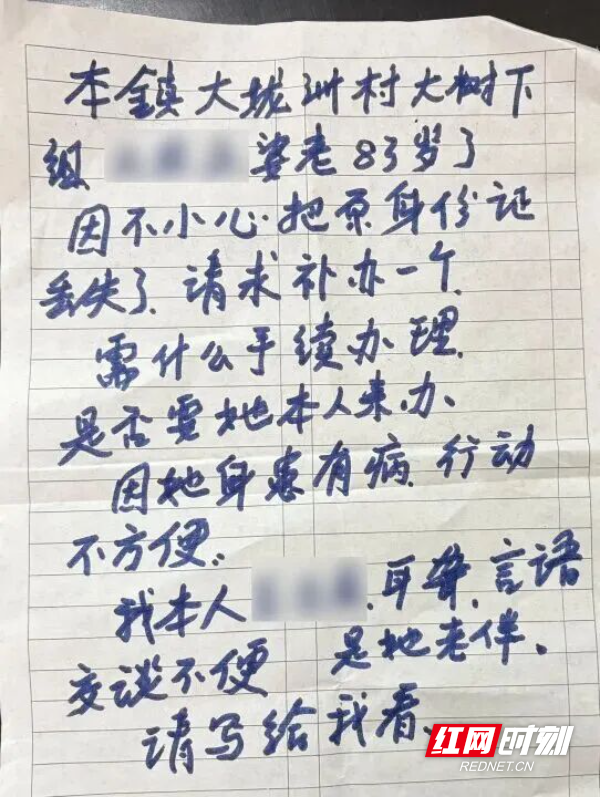 本镇大垅洲村大树下
组 婆老83岁了
因不小心把原身份证
丢失了、请求补办一个、
需什么手续办理、
是否要她本人来办、
因她身患有病、行动
不方便、
我本人 、耳聋、言语
交谈不便 是她老伴、
请写给我看、
红网时刻
REDNET.CN